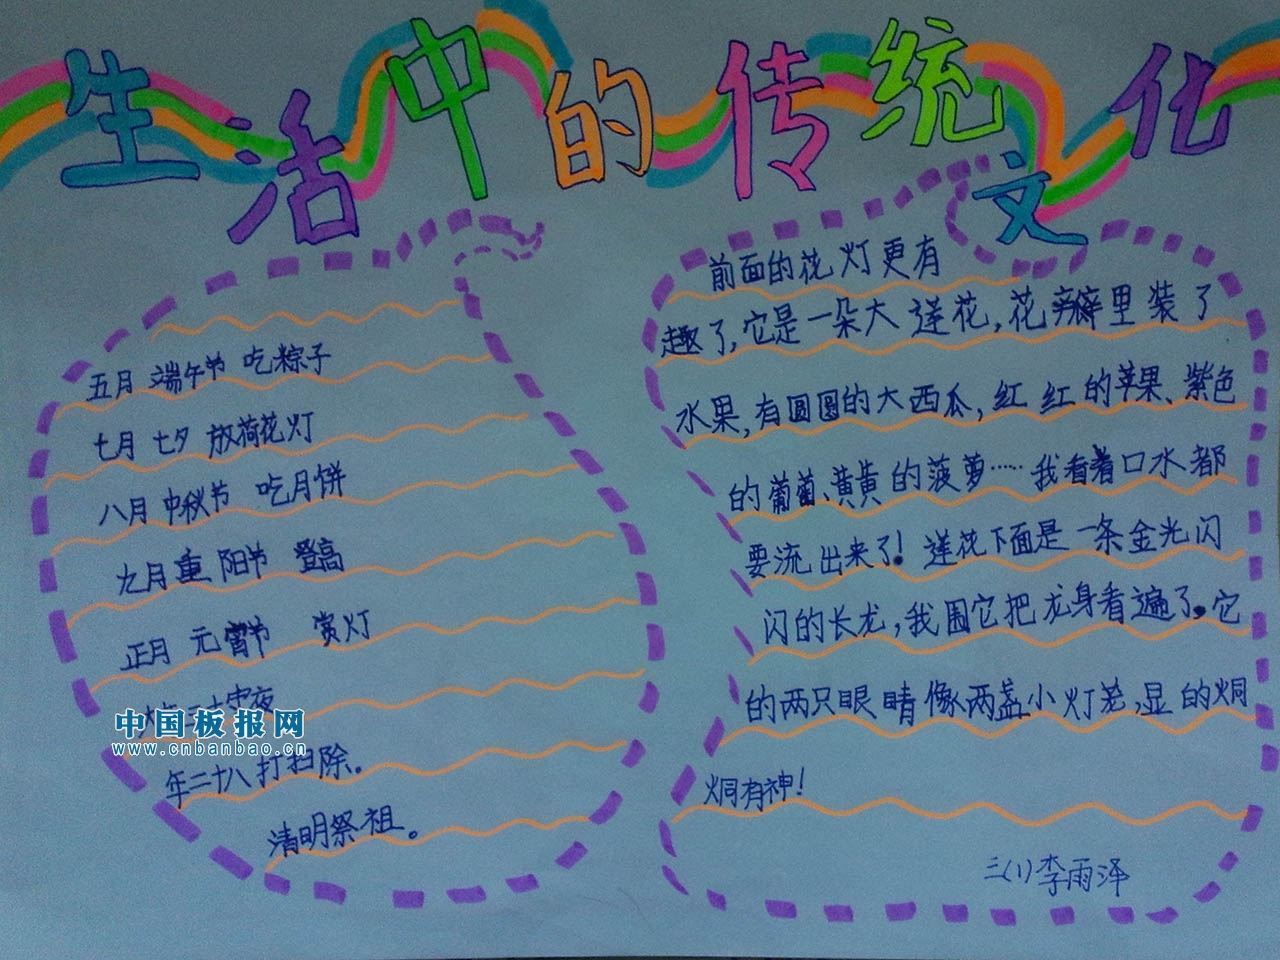 生活中的传统文化
五月 端午节 吃粽子
七月 七夕 放荷花灯
八月 中秋节 吃月饼
九月 重阳节 登高
正月 元宵节 赏灯
夜
中国板报网
www.cnbanbao.cn
年二十八打扫除。
清明祭祖。
前面的花灯更有
趣了,它是一朵大莲花,花瓣里装了
水果,有圆圆的大西瓜,红红的苹果、紫色
的葡萄、黄黄的菠萝……我看着口水都
要流出来了!莲花下面是一条金光闪
闪的长龙,我围它把龙身看遍了。它
的两只眼睛像两盏小灯笼,显的炯
炯有神!
三(1)李雨泽